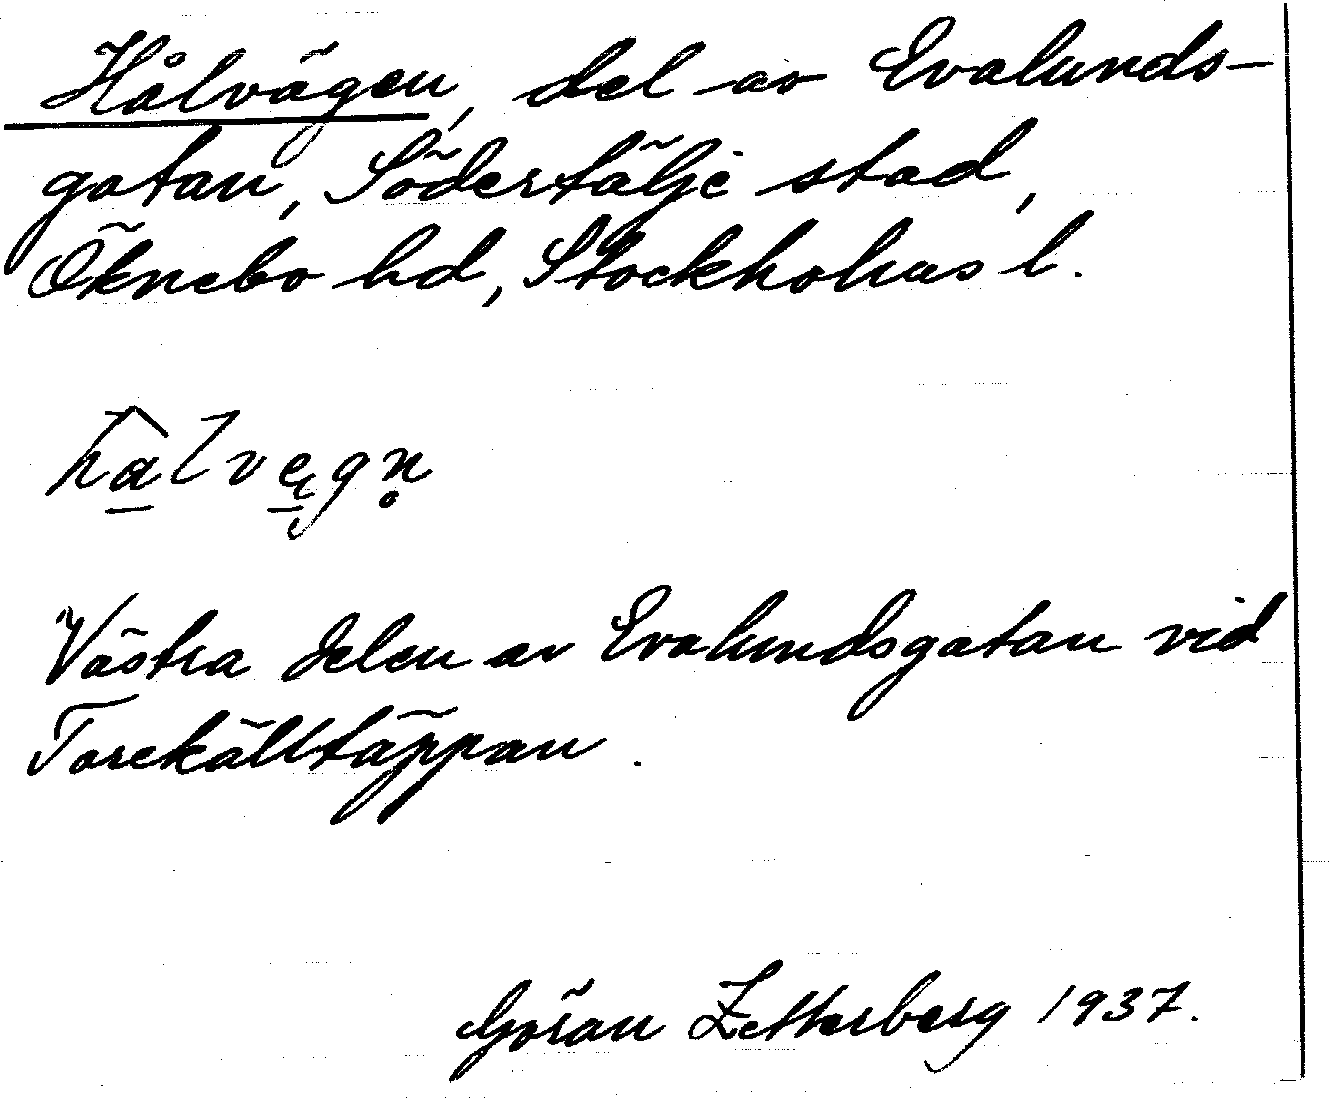 Hålvägen, del av Evalunds-
gatan, Södertälje stad,
Öknebo hd, Stockholms l.
Västra delen av Evalundsgatan vid
Torekälltäppan.
Göran Zetterberg 1937.